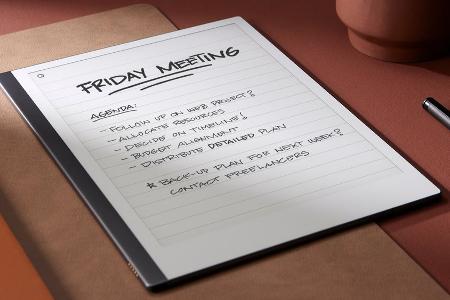 FRIDAY MEETING
AGENDA:
- FOLLOW UP ON WEB PROJECT?
- ALLOCATE RESOURCES
- DECIDE ON TIMELINE!
- BUDGET ALIGNMENT
- DISTRIBUTE DETAILED PLAN
* BACK-UP PLAN FOR NEXT WEEK?
CONTACT FREELANCERS